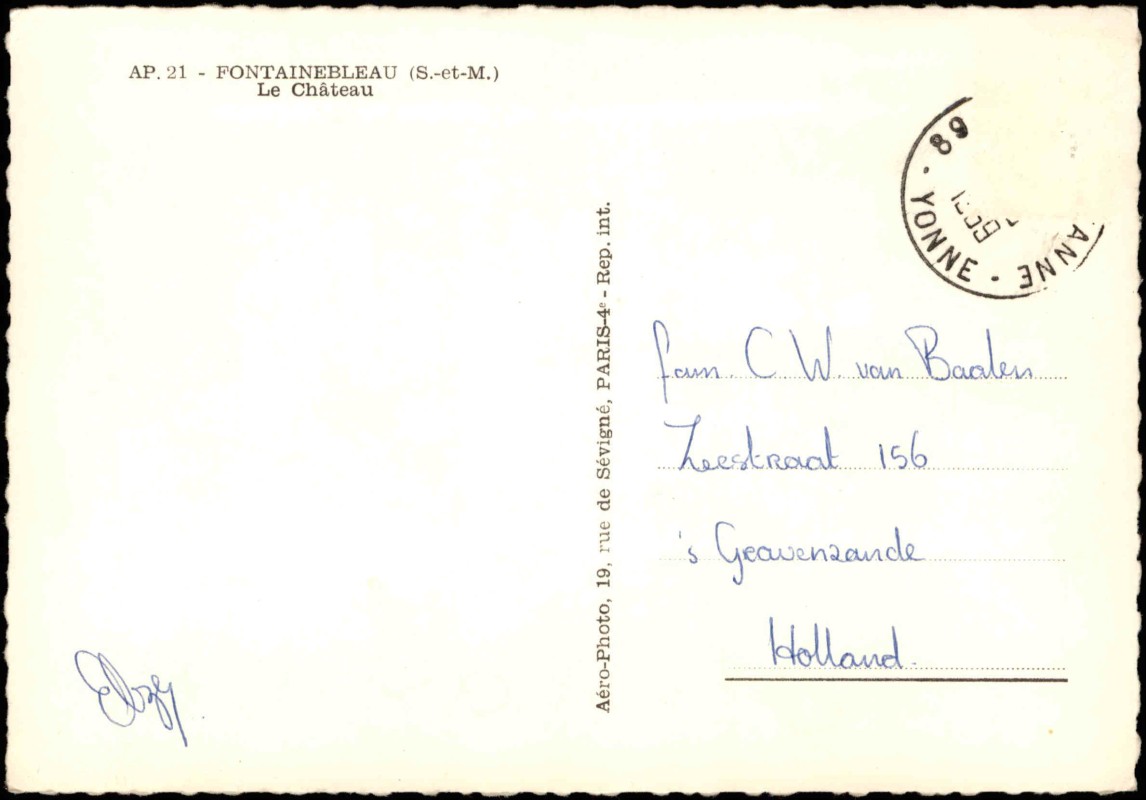 AP. 21 - FONTAINEBLEAU (S.-et-M.)
Le Château
89 · YONNE · ANNE
Aéro-Photo, 19, rue de Sévigné, PARIS-4e - Rep. int.
fam. C W. van Baalen
Zeestraat 156
's Gravenzande
Holland.